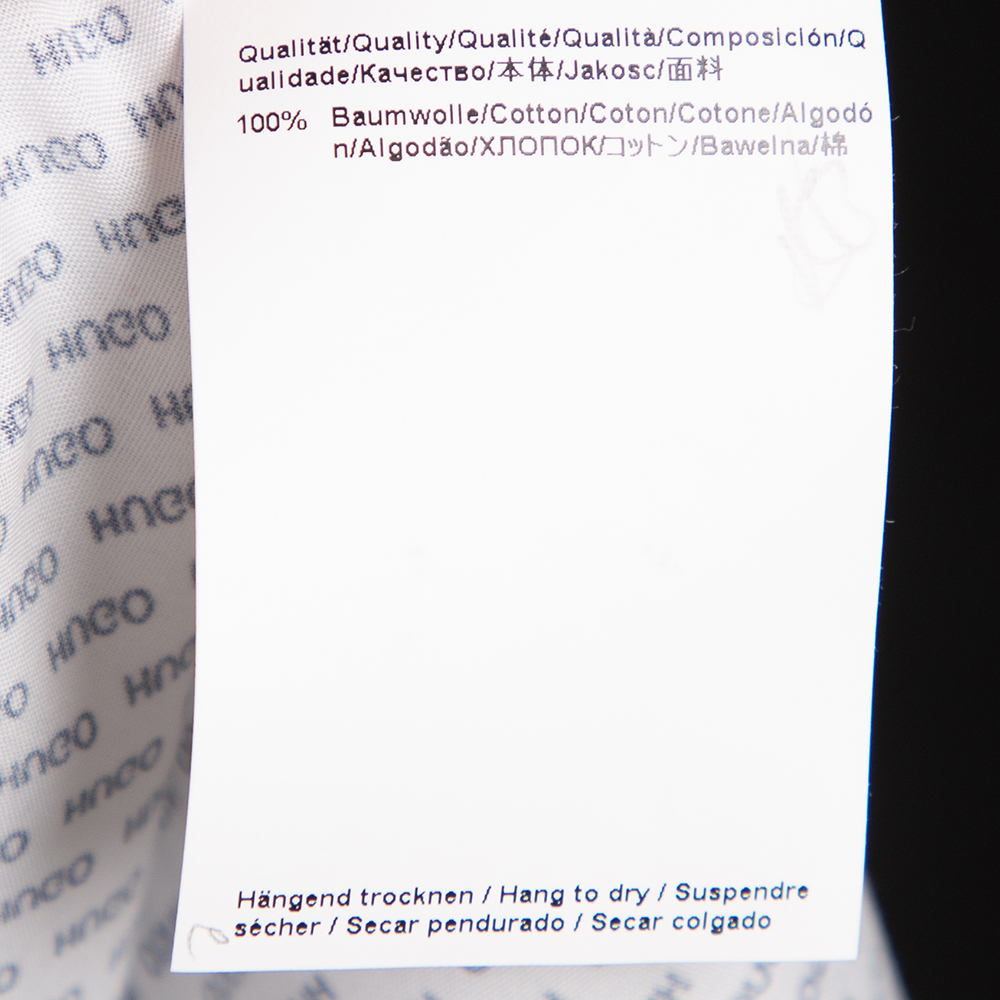 Qualität/Quality/Qualité/Qualità/Composición/Q
ualidade/Качество/本体/Jakosc/面料
100% Baumwolle/Cotton/Coton/Cotone/Algodó
n/Algodão/ХЛОПОК/コットン/Bawelna/棉
Hängend trocknen / Hang to dry / Suspendre
sécher / Secar pendurado / Secar colgado
HUGO
HUGO
HUGO
HUGO
HUGO
HUGO
HUGO
HUGO
HUGO